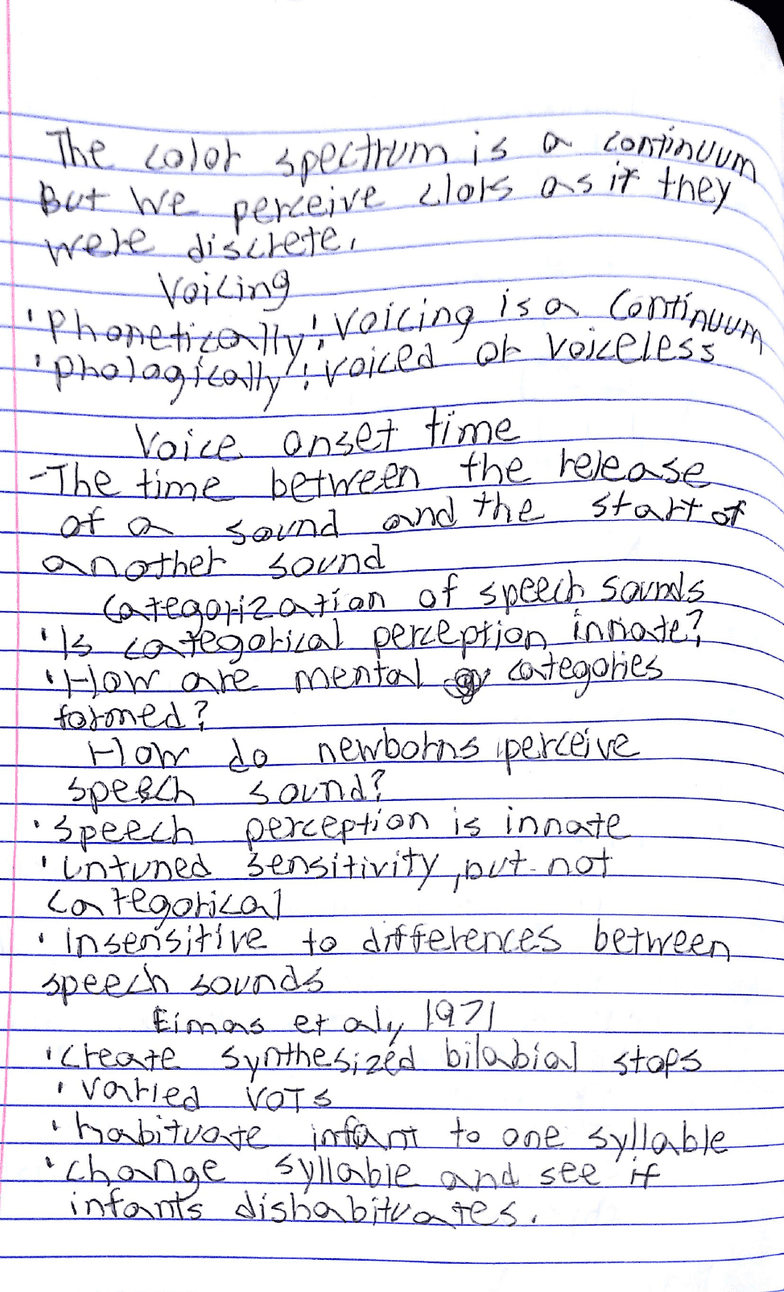 The color spectrum is a continuum
But we perceive clors as if they
were discrete.
Voicing
'Phonetically: voicing is a continuum
'phologically: voiced or voiceless
Voice onset time
-The time between the release
of a sound and the start of
another sound
Categorization of speech sounds
'Is categorical perception innate?
'How are mental categories
formed?
How do newborns perceive
speech sound?
'speech perception is innate
'untuned sensitivity, but not
categorical
'insensitive to differences between
speech sounds
Eimas et al, 1971
'create synthesized bilabial stops
'varied VOTs
'habituate infant to one syllable
'change syllable and see if
infants dishabituates.